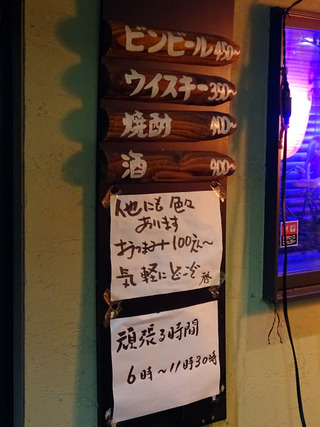 ビンビール 450～
ウイスキー 350～
焼酎 400～
酒 400～
他にも色々
あります
おつまみ100えん～
気軽にどーぞ
頑張る時間
6時～11時30時